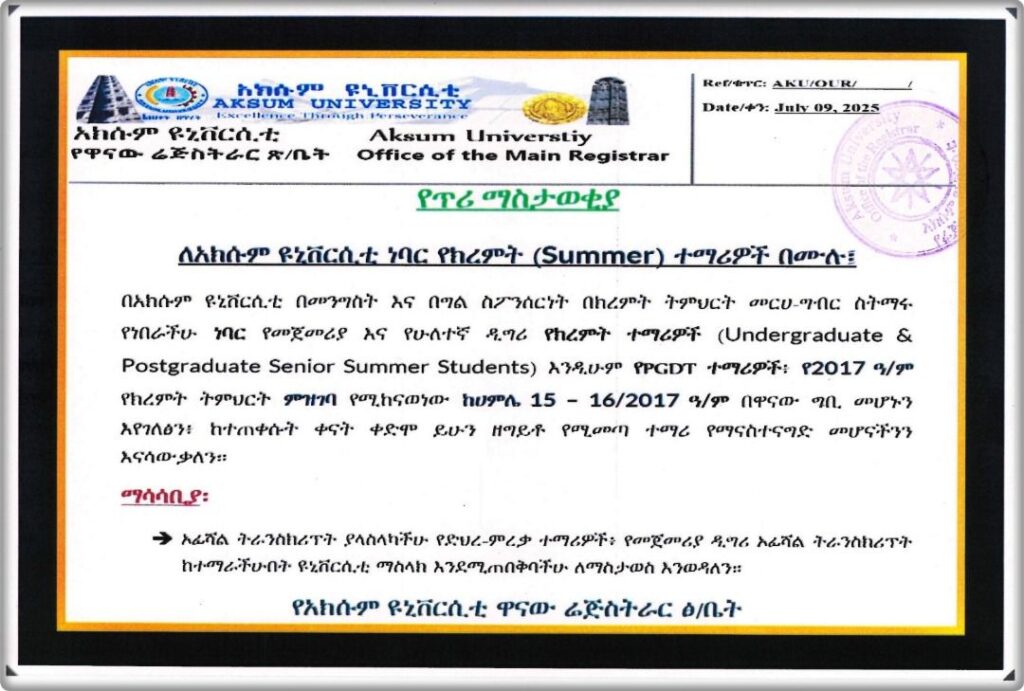 አክሱም ዩኒቨርሲቲ
AKSUM UNIVERSITY
Excellence Through Perseverance
አክሱም ዩኒቨርሲቲ
Aksum Universtiy
የዋናው ሬጅስትራር ጽ/ቤት
Office of the Main Registrar
Ref/ቁጥር: AKU/OUR/ /
Date/ቀን: July 09, 2025
Aksum University
Office of the Registrar
የጥሪ ማስታወቂያ
ለአክሱም ዩኒቨርሲቲ ነባር የክረምት (Summer) ተማሪዎች በሙሉ፤
በአክሱም ዩኒቨርሲቲ በመንግስት እና በግል ስፖንሰርነት በክረምት ትምህርት መርሀ-ግብር ስትማሩ
የነበራችሁ ነባር የመጀመሪያ እና የሁለተኛ ዲግሪ የክረምት ተማሪዎች (Undergraduate &
Postgraduate Senior Summer Students) እንዲሁም የPGDT ተማሪዎች፣ የ2017 ዓ/ም
የክረምት ትምህርት ምዝገባ የሚከናወነው ከሀምሌ 15 – 16/2017 ዓ/ም በዋናው ግቢ መሆኑን
እየገለፅን፣ ከተጠቀሱት ቀናት ቀድሞ ይሁን ዘግይቶ የሚመጣ ተማሪ የማናስተናግድ መሆናችንን
እናሳውቃለን።
ማሳሰቢያ፡
➔ ኦፊሻል ትራንስክሪፕት ያላስላካችሁ የድህረ-ምረቃ ተማሪዎች፣ የመጀመሪያ ዲግሪ ኦፊሻል ትራንስክሪፕት
ከተማራችሁበት ዩኒቨርሲቲ ማስላክ እንደሚጠበቅባችሁ ለማስታወስ እንወዳለን።
የአክሱም ዩኒቨርሲቲ ዋናው ሬጅስትራር ፅ/ቤት